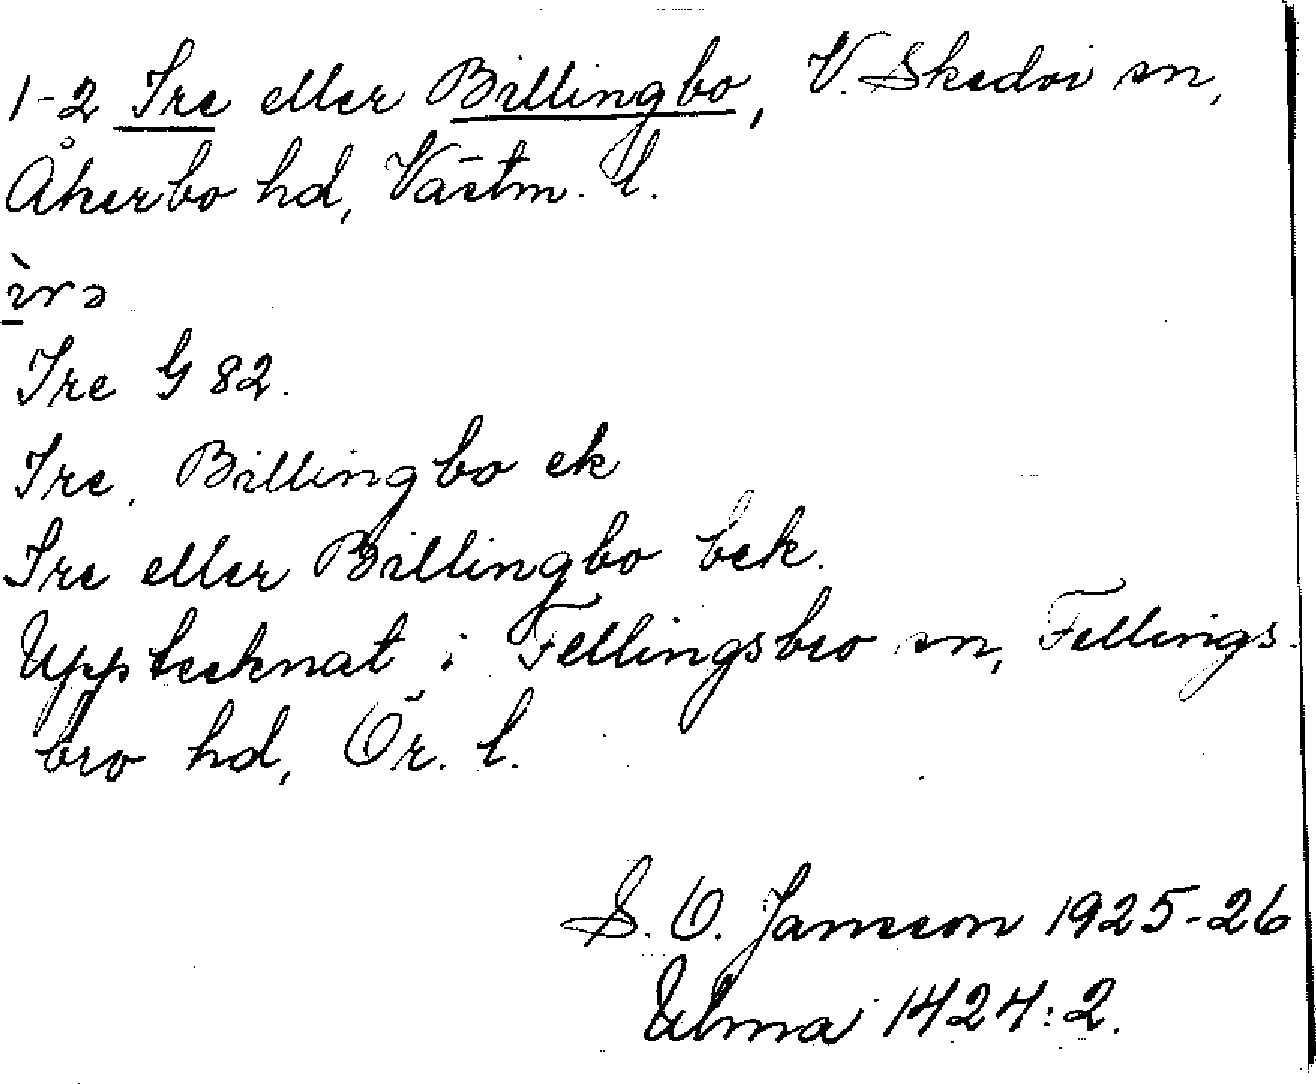 1-2 Ire eller Billingbo, V. Skedvi sn,
Åkerbo hd, Västm. l.
ìrə
Ire G 82.
Ire, Billingbo ek
Ire eller Billingbo bek.
Upptecknat i Fellingsbro sn, Fellings-
bro hd, Ör. l.
S. O. Jansson 1925-26
Ulma 1424:2.